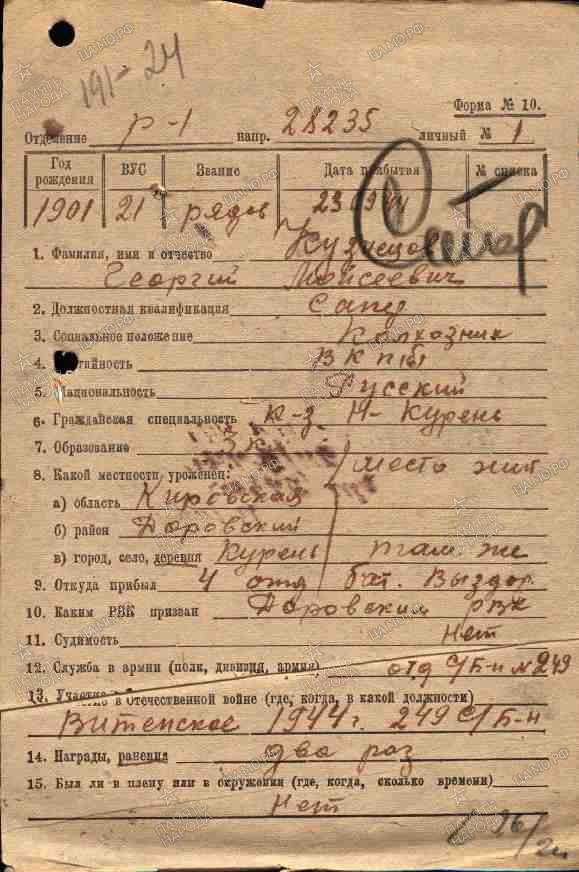 191-24
Форма № 10.
Отделение р-1 напр. 28235 личный № 1
Год рождения ВУС Звание Дата прибытия № списка
1901 21 рядов
1. Фамилия, имя и отчество Кузнецов
Георгий Мойсеевич
2. Должностная квалификация
3. Социальное положение Колхозник
4. Партийность ВКП(б)
5. Национальность Русский
6. Гражданская специальность к-з Н-Курень
7. Образование 3 к
8. Какой местности уроженец: место жит
а) область Кировская
б) район Даровский
в) город, село, деревня Курень там же
9. Откуда прибыл 4 отд бат. Выздор.
10. Каким РВК призван Даровским РВК
11. Судимость Нет
12. Служба в армии (полк, дивизия, армия) отд С/Б-н № 249
13. Участие в Отечественной войне (где, когда, в какой должности)
Витепское 1944 г. 249 С/Б-н
14. Награды, ранения два раз
15. Был ли в плену или в окружении (где, когда, сколько времени)
Нет